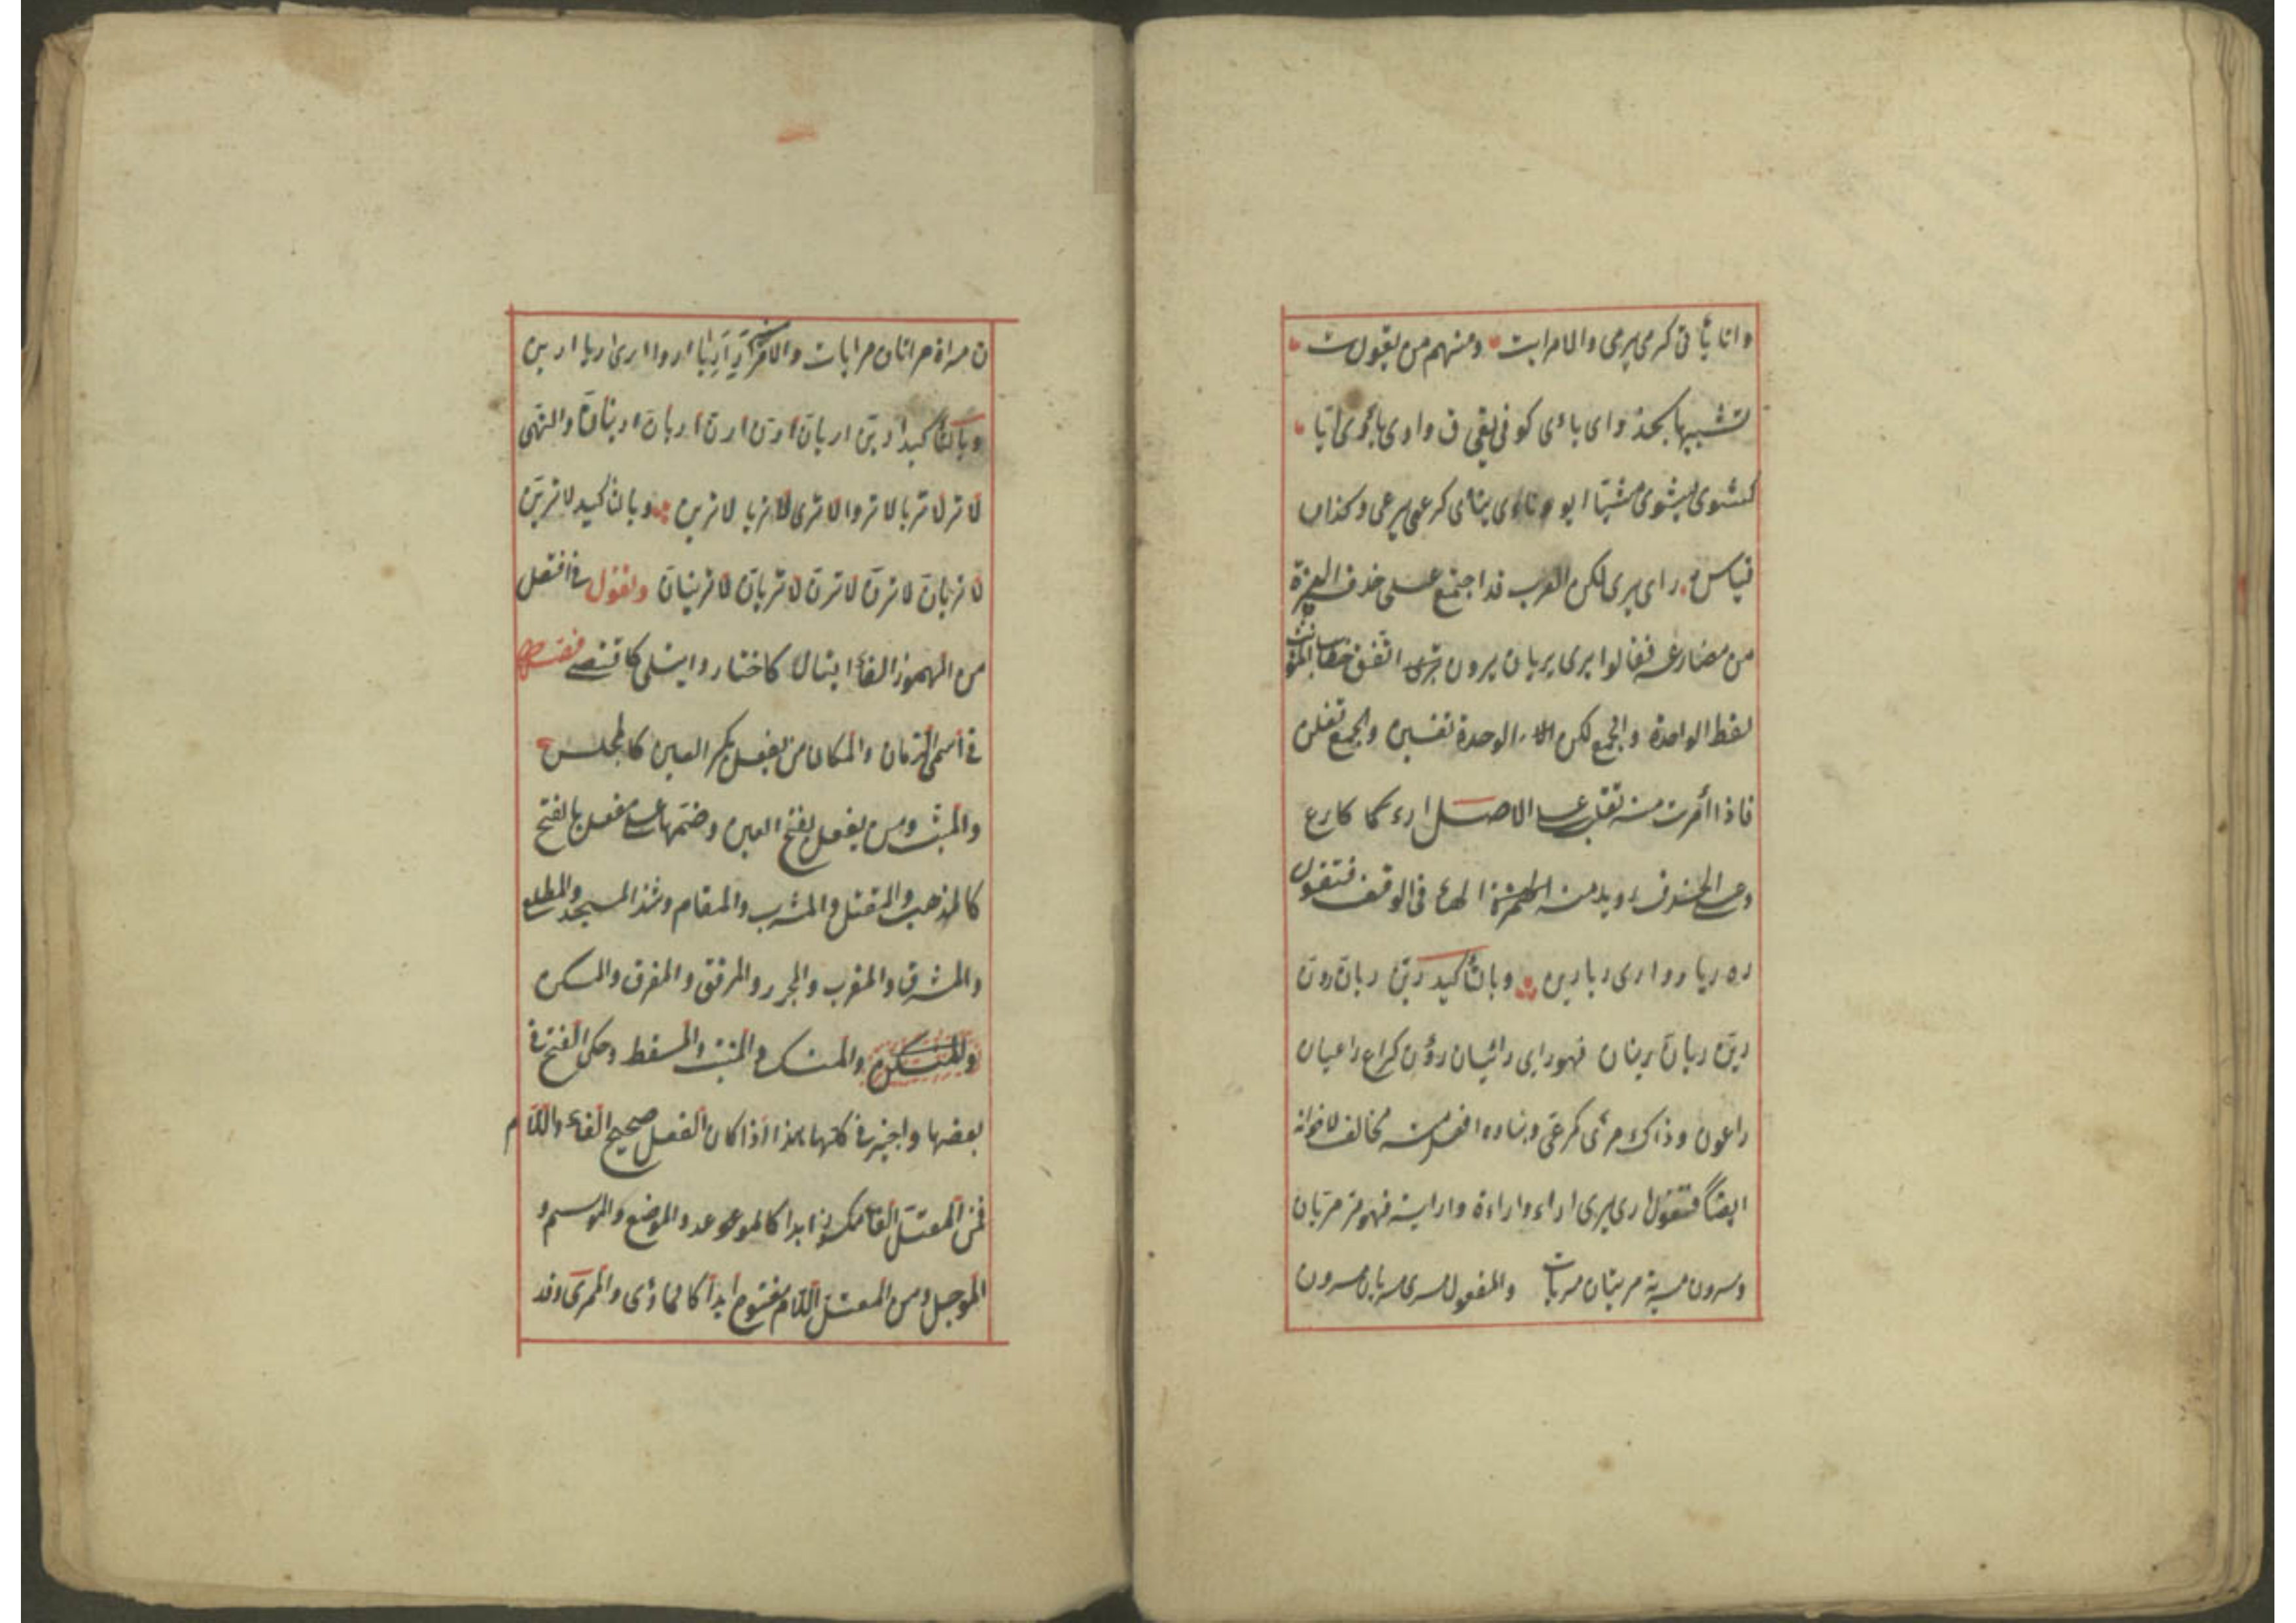 واتا يأتى كرمى يرمى والامرايت ومنهم من يقول ت
تشبيها بخذ واى ياءى كوفى يقى ق واوى ياوى ايّا
كشوى يشوى شيّا ايو وناءى يناى كرعى يرعى وكذاب
قياس راى يرى لكن العرب قد اجتمع على حذف الهمزة
من مضارعه فقالوا يرى يريان يرون ترى اتفق خطاب المؤنث
لفظ الواحدة والجمع لكن الواحدة تفين والجمع تفلن
فاذا أمرت منه تقل على الاصل ارء كارع
وعلى الحذف ر ويلزمه الهاء فى الوقف فتقول
ره ريا روا رى ريا رين وبالتأكيد رينّ ريانّ رونّ
رينّ ريانّ رينان فهوراى رائيان رؤن كراع راعيان
راعون وذاك مرئى كمرعى وبناء افعل منه مخالف لاخواته
ايضا فتقول ارى يرى اراء واراءة واراية فهو مر مريان
ومرون مرية مريتان مريات والمفعول مرى مريان مرون
ن مراة مراتان مرايات والامر ار اريا اروا ارى اريا ارين
وبالتأكيد ارينّ اريانّ ارنّ ارنّ اريانّ ارينانّ والنهى
لا تر لا تريا لا تروا لا ترى لا تريا لا ترين وبالتأكيد لا ترينّ
لا تريانّ لا ترنّ لا ترنّ لا تريانّ لا ترينانّ ونقول فى افتعل
من المهموز الفاء ايتال كاختار وايتلى كاقتضى فصل
فى اسمى الزمان والمكان من يفعل بكسر العين كالمجلس
والمبيت ومن يفعل بفتح العين وضمها على مفعل بالفتح
كالمذهب والمقتل والمشرب والمقام وشذ المسجد والمطلع
والمشرق والمغرب والمجزر والمرفق والمفرق والمسكن
والمسكن والمنسك والمنبت والمسقط وحكى الفتح فى
بعضها واجيز فى كلها هذا اذا كان الفعل صحيح الفاء واللام
فمن المعتل الفاء مكسور ابدا كالموعد والموضع والموسم و
الموجل ومن المعتل اللام مفتوح ابدا كالماوى والمرمى وقد